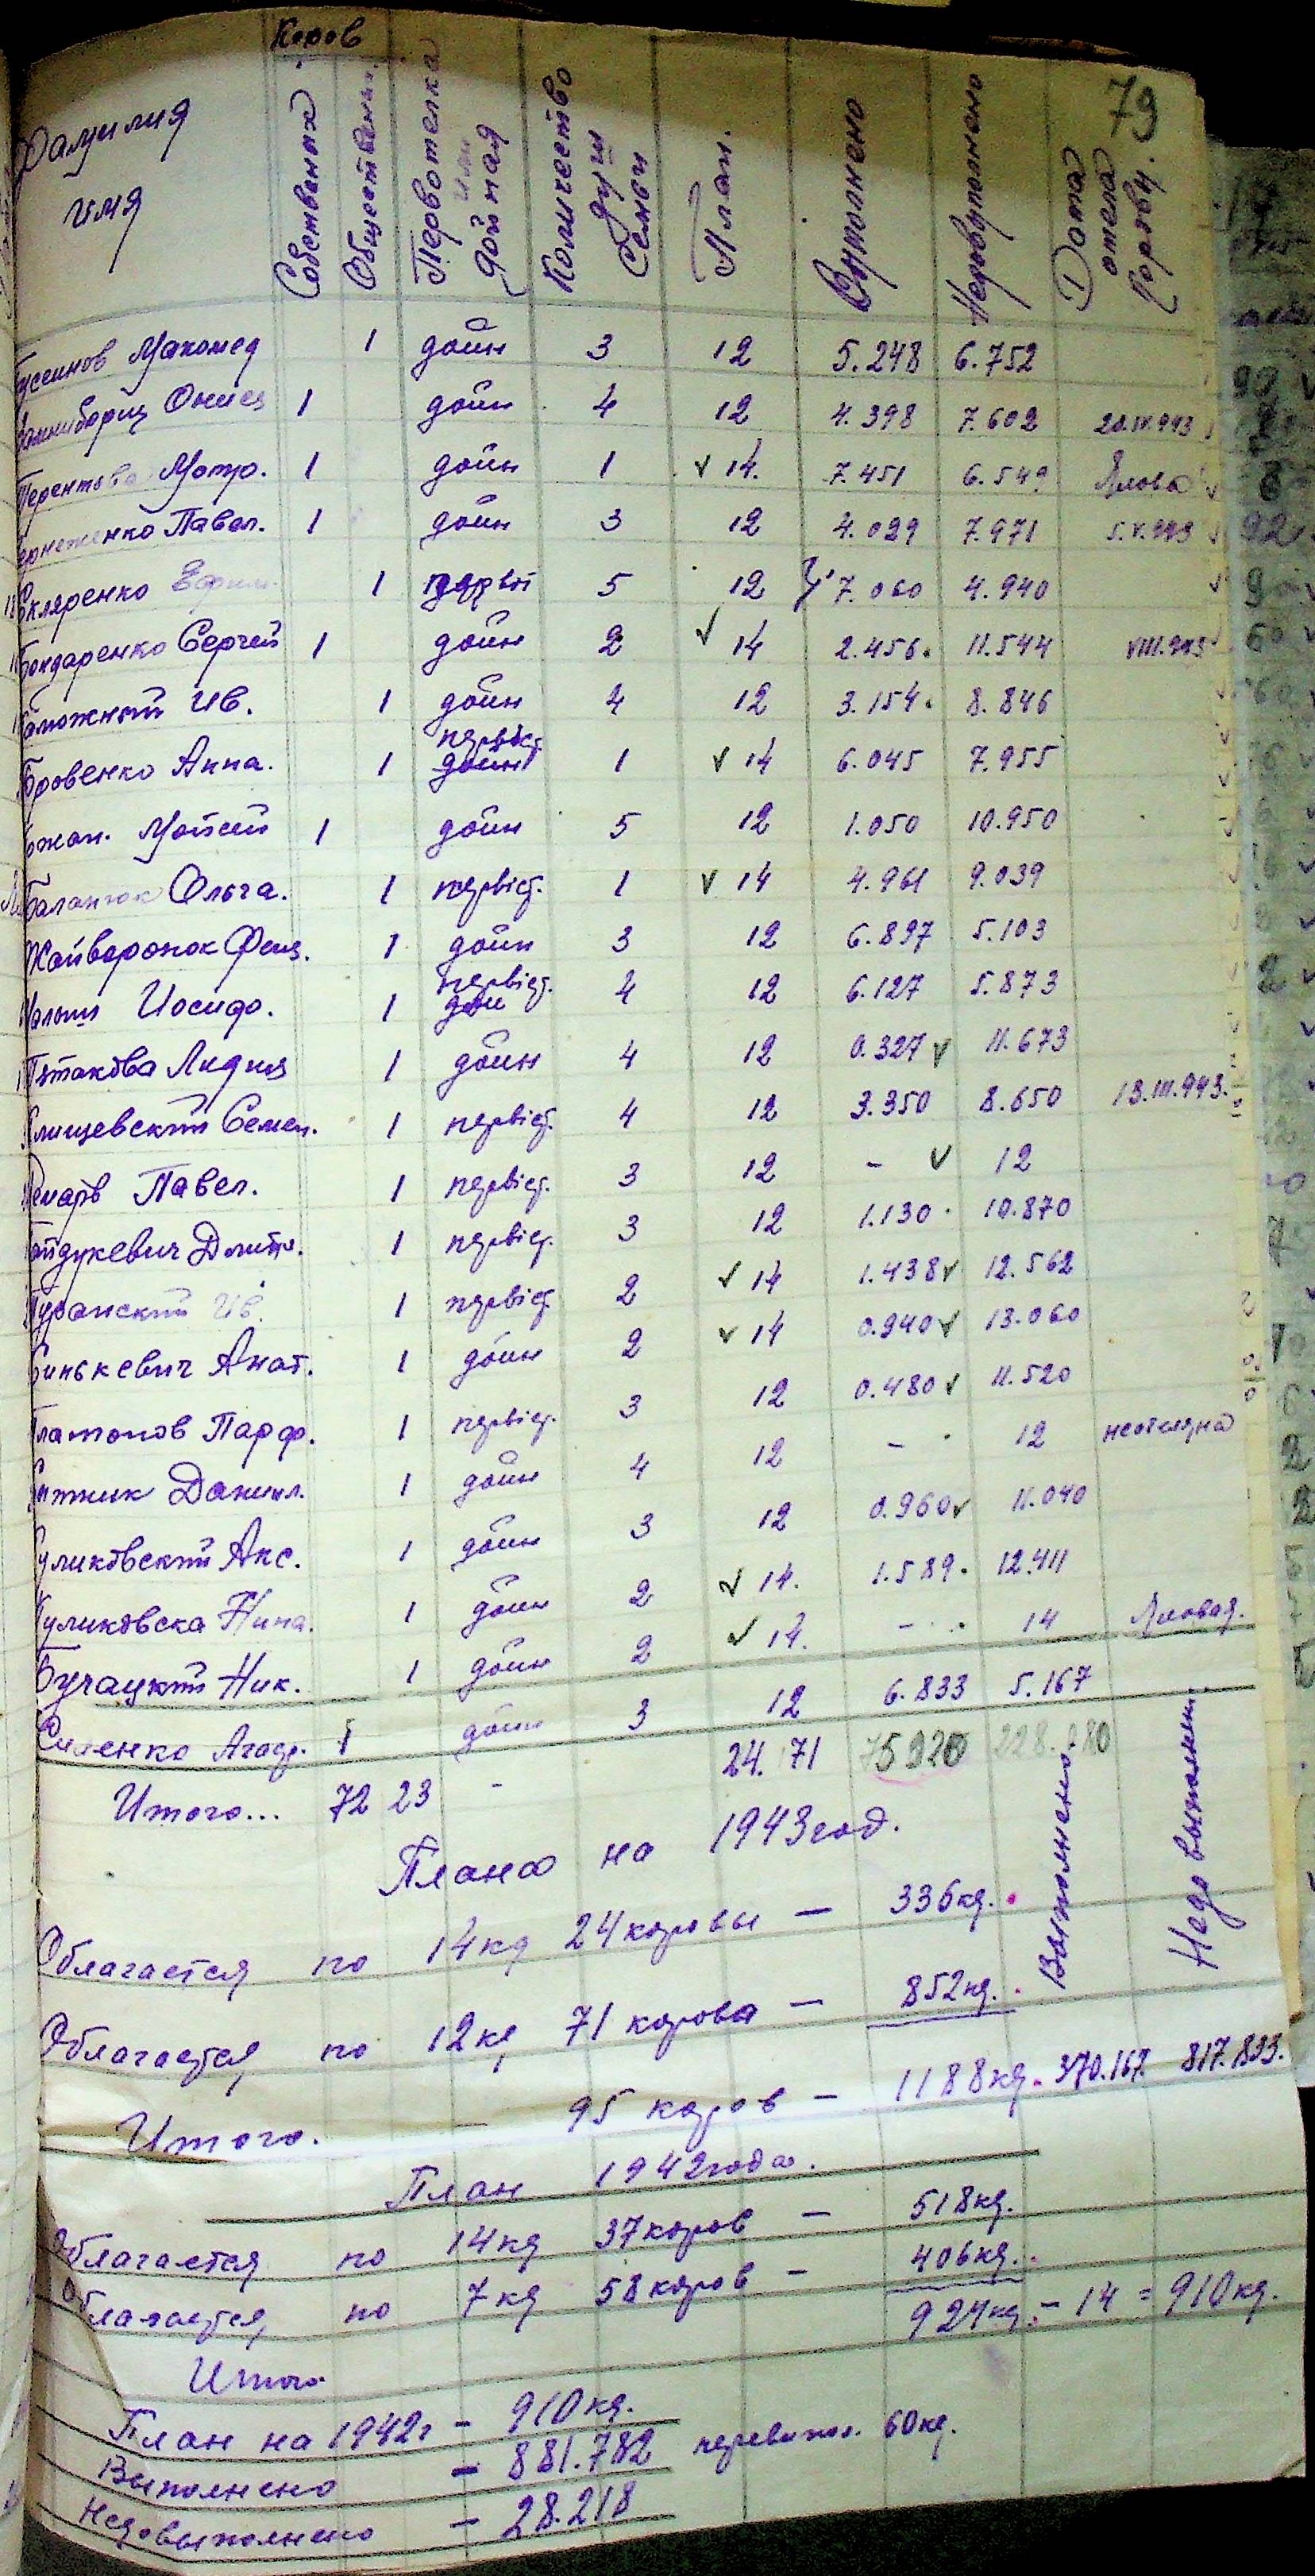 79
Коров
Фамилия имя Собственных Обществен. Первотелка или дойная Количество душ семьи План. Выполнено Недовыполнено Дата отела коровы.
Макомед 1 дойн 3 12 5.248 6.752
1 дойн 4 12 4.398 7.602 20.IV.943
Мотр. 1 дойн 1 ✓ 14. 7.451 6.549 Ялова
Павел. 1 дойн 3 12 4.029 7.971 5.V.943
Скляренко Ефим. 1 5 12 7.060 4.940
Бондаренко Сергей 1 дойн 2 ✓ 14 2.456. 11.544 VIII.943
Ив. 1 дойн 4 12 3.154. 8.846
Бровенко Анна. 1 первіст. дойн 1 ✓ 14 6.045 7.955
Мойсей 1 дойн 5 12 1.050 10.950
Ольга. 1 первіст. 1 ✓ 14 4.961 9.039
Жайворонок 1 дойн 3 12 6.897 5.103
Иосиф. 1 первіст. 4 12 6.127 5.873
Лидия 1 дойн 4 12 0.327 ✓ 11.673
Семен. 1 первіст. 4 12 3.350 8.650 13.III.943.
Павел. 1 первіст. 3 12 - ✓ 12
Гайдукевич Дмитр. 1 первіст. 3 12 1.130. 10.870
Ив. 1 первіст 2 ✓ 14 1.438 ✓ 12.562
Анат. 1 дойн 2 ✓ 14 0.940 ✓ 13.060
Платонов Парф. 1 первіст. 3 12 0.480 ✓ 11.520
Даниил. 1 дойн 4 12 - . 12 неотеляна
Куликовский Акс. 1 дойн 3 12 0.960 ✓ 11.040
Куликовска Нина. 1 дойн 2 ✓ 14. 1.589. 12.411
Бучацкий Ник. 1 дойн 2 ✓ 14. - . 14 Яловая.
Агаф. 1 дойн 3 12 6.833 5.167
Итого... 72 23 - 24. 71 75920 228.080
План на 1943 год.
Выполнено Недовыполнен.
Облагается по 14 кг 24 коровы — 336 кг.
Облагается по 12 кг 71 корова — 852 кг.
Итого. — 95 коров — 1188 кг. 370.167. 817.833.
План 1942 года.
Облагается по 14 кг 37 коров — 518 кг.
Облагается по 7 кг 58 коров — 406 кг.
Итого 924 кг. - 14 = 910 кг.
План на 1942 г — 910 кг.
Выполнено — 881.782 перевипол. 60 кг.
Недовыполнено — 28.218